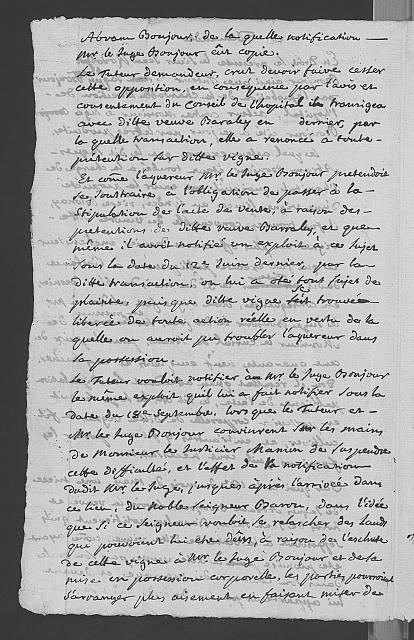 Abram Bonjour, de la quelle notification
Mr. le Juge Bonjour eût copie.
Le Tuteur demandeur, crut devoir faire cesser
cette opposition, en consequence par l'avis et
consentement du Conseil de l'hopital il transigea
avec ditte veuve Barraly en dernier, par
la quelle transaction, elle a renoncé a toute
pretention sur ditte vigne.
Et come l'aquereur Mr. le Juge Bonjour pretendoit
se soustraire à l'obligation de passer à la
Stipulation de l'acte de vente, à raison des
pretentions de ditte veuve Barraly, et que
même il avoit notifié un exploit à ce sujet
sous la date du 12e Juin dernier, par la
ditte transaction, on lui a oté tout sujet de
plainte, puis que ditte vigne se trouvée
liberée de toute action réelle en vertu de la
quelle on auroit pu troubler l'aquereur dans
sa possession.
Le Tuteur vouloit notifier à Mr. le Juge Bonjour
le même exploit qu'il lui a fait notifier sous la
date du 18e Septembre, lors que le Tuteur et
Mr. le Juge Bonjour convinrent sur les mains
de Monsieur le Justicier Mamin de suspendre
cette difficulté, et l'effet de la notification
dudit Mr. le Juge, jusques après l'arrivée dans
ce lieu, du Noble Seigneur Baron, dans l'idée
que si ce Seigneur vouloit se relascher des Lauds
qui pouvoient lui être dûs, à raison de l'eschute
de cette vigne à Mr. le Juge Bonjour et de sa
mise en possession corporelle, les parties pourroient
s'arranger plus aisement en faisant miser de